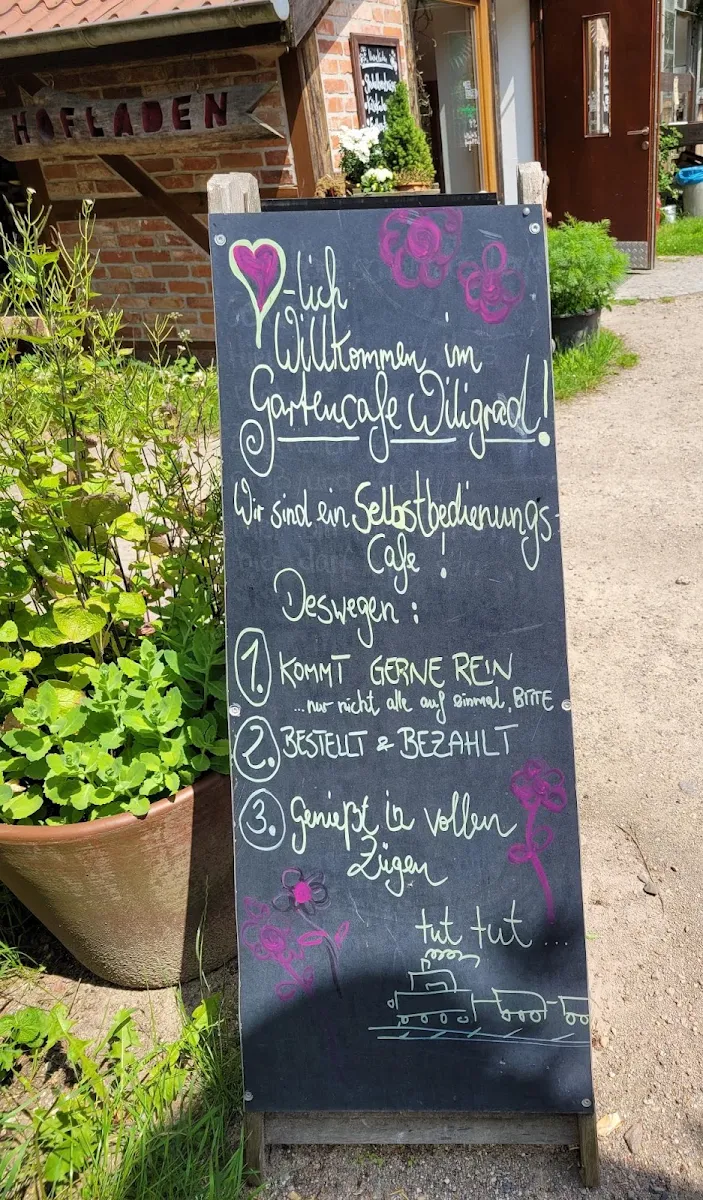 HOFLADEN
-lich
Willkommen im
Gartencafe Wiligrad!
Wir sind ein Selbstbedienungs-
Cafe !
Deswegen :
1. KOMMT GERNE REIN
...nur nicht alle auf einmal, BITTE
2. BESTELLT & BEZAHLT
3. Genießt in vollen
Zügen
tut tut ...